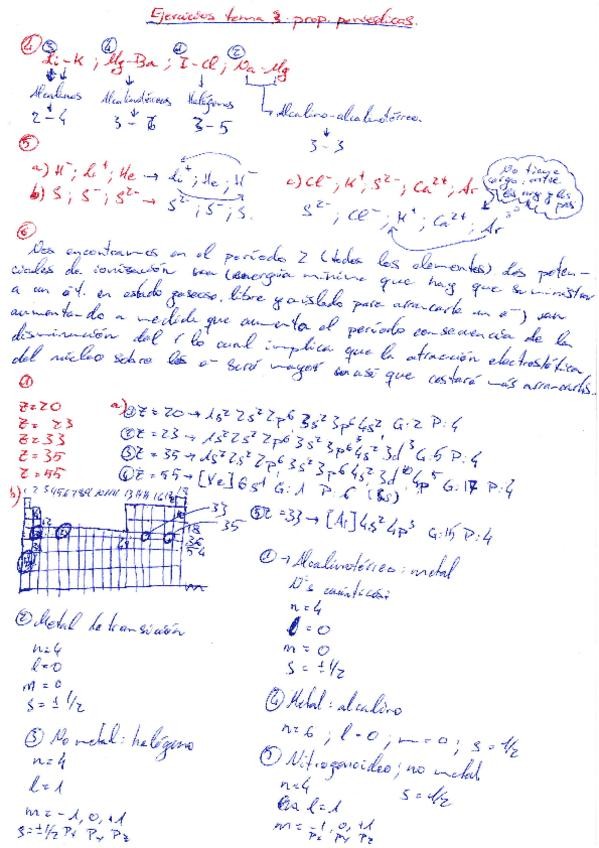 Ejercicios tema 3: prop. periódicas.
④ Li-K ; Mg-Ba ; I-Cl ; Na-Mg
Alcalinos Alcalinotérreos Halógenos Alcalino-alcalinotérreo.
2-4 3-6 3-5 3-3
⑤
a) H⁻; Li⁺; He → Li⁺; He; H⁻
b) S; S⁻; S²⁻ → S²⁻; S⁻; S.
c) Cl⁻; K⁺; S²⁻; Ca²⁺; Ar
S²⁻; Cl⁻; K⁺; Ca²⁺; Ar
No tiene
carga: entre
los neg y los
pos
⑥
Nos encontramos en el período 2 (todos los elementos) Los poten-
ciales de ionización van (energía mínima que hay que suministrar
a un át. en estado gaseoso, libre y aislado para arrancarle un e⁻) van
aumentando a medida que aumenta el período consecuencia de la
disminución del r lo cual implica que la atracción electrostática
del núcleo sobre los e⁻ será mayor así que costará más arrancarlos.
①
Z=20
Z= 23
Z=33
Z=35
Z=55
a) ① Z=20 → 1s² 2s² 2p⁶ 3s² 3p⁶ 4s² G:2 P:4
② Z=23 → 1s² 2s² 2p⁶ 3s² 3p⁶ 4s² 3d³ G:5 P:4
③ Z=35 → 1s² 2s² 2p⁶ 3s² 3p⁶ 4s² 3d¹⁰ 4p⁵ G:17 P:4
④ Z=55 → [Xe] 6s¹ G:1 P:6 (Cs)
⑤ Z=33 → [Ar] 4s² 4p³ G:15 P:4
b) 1 2 3 4 5 6 7 8 9 10 11 12 13 14 15 16 17 18
33
35
18
36
54
① → Alcalinotérreo: metal
Nºs cuánticos:
n=4
l=0
m=0
s=±1/2
② Metal de transición
n=4
l=0
m=0
s=±1/2
③ No metal: halógeno
n=4
l=1
m=-1, 0, +1
s=±1/2 Px Py Pz
④ Metal: alcalino
n=6; l=0; m=0; s=1/2
⑤ Nitrogenoideo; no metal
n=4 s=1/2
l=1
m=-1, 0, +1
Px Py Pz